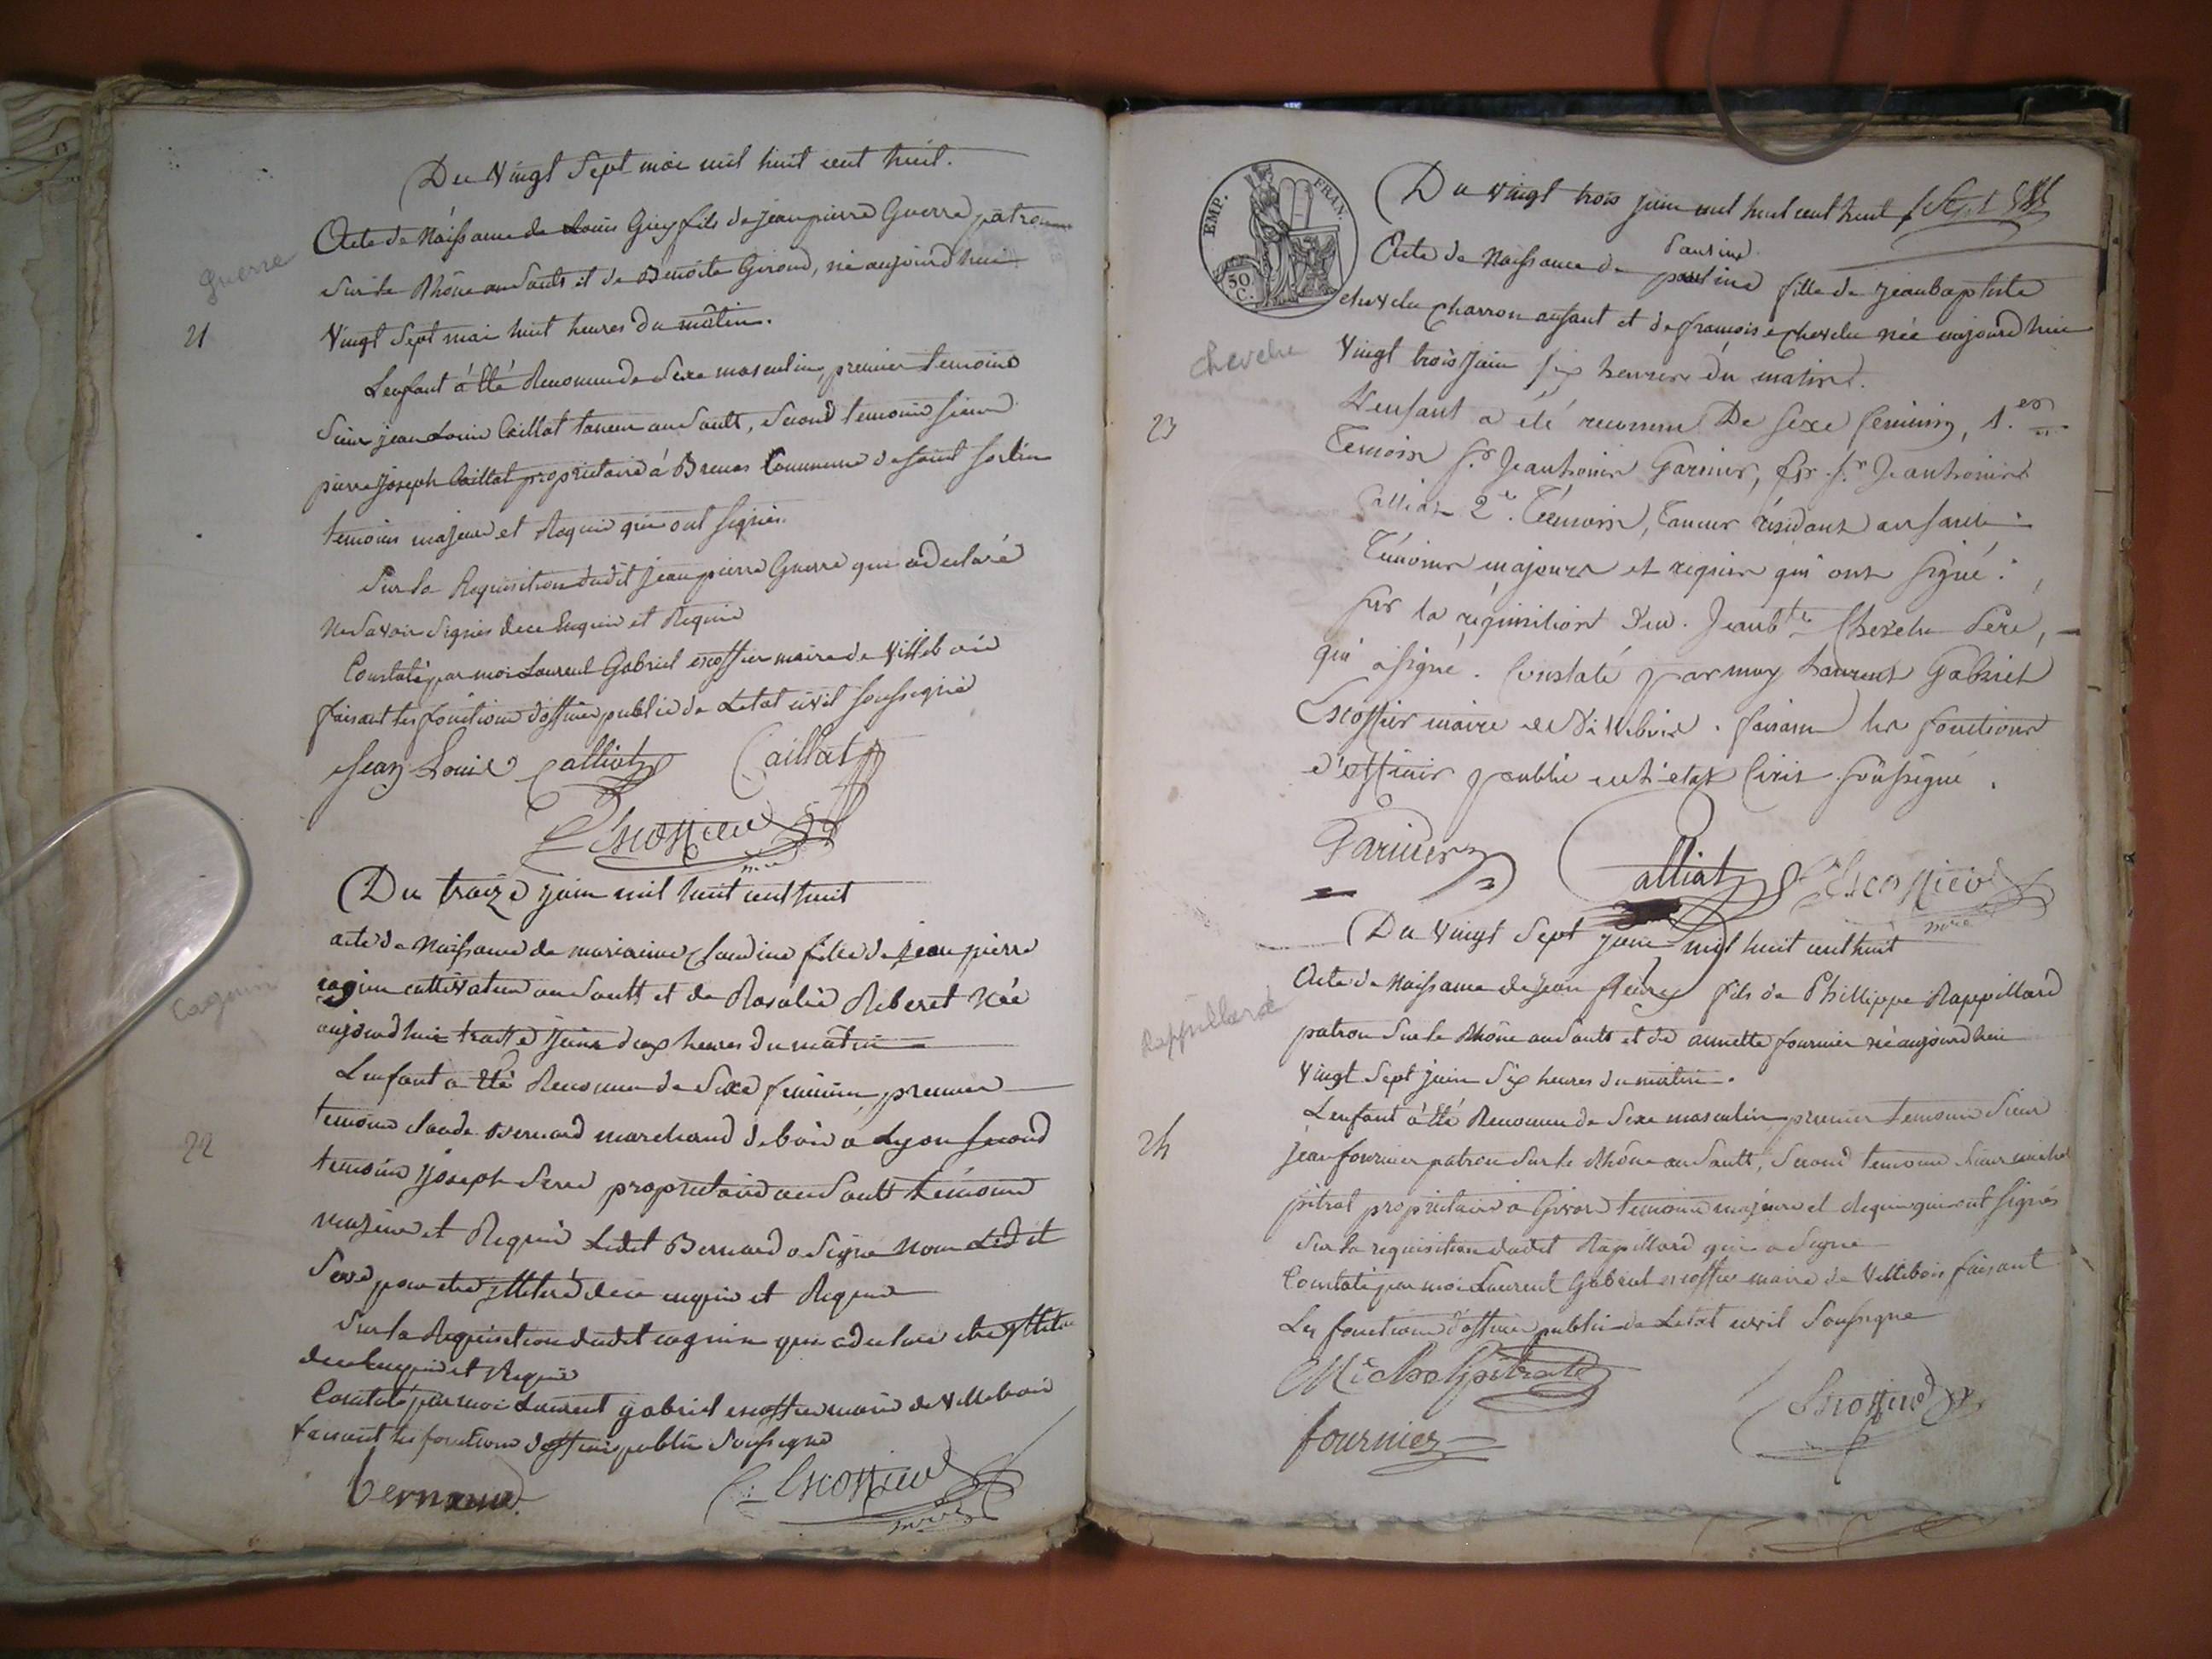 Du Vingt Sept mai mil huit cent huit.
Acte de Naissance de Louis Guy fils de jean pierre Guerre patron
Guerre
Sur le Rhône au Sault et de Benoite Giroud, né aujourd'hui
21
Vingt Sept mai huit heures du matin.
L'enfant à été Reconnu de Sexe masculin, premier temoins
Sieur jean Louis Caillat taneur au Sault, Second temoin sieur
pierre joseph Caillat proprietaire à Brenas Commune de saint Sorlin
temoins majeur et Requis qui ont signés.
Sur la Requisition dudit jean pierre Guerre qui a declaré
Ne Savoir Signer de ce Enquis et Requis
Constaté par moi Laurent Gabriel escoffier maire de Villebois
faisant les fonctions d'officier public de Letat civil soussigné
Jean Louis Calliat Caillat
Escoffier
mre
Du traize juin mil huit cent huit
acte de Naissance de marianne Claudine fille de jean pierre
cagnin cultivateur au Sault et de Rosalie Reberet Née
Cagnin
aujourdhui traize juin deux heures du matin
L'enfant a été Reconnu de Sexe feminin, premier
22
temoins claude Bernard marchand de bois a Lyon second
temoins joseph Serre proprietaire au Sault temoins
majeur et Requis Ledit Bernard a Signé Non Ledit
Serre pour etre illiteré de ce enquis et Requis
Sur la Requisition dudit cagnin qui a declaré etre illiteré
de ce Enquis et Requis
Constaté par moi Laurent gabriel escoffier maire de Villebois
faisant les fonctions d'officier public Soussigné
bernard
Escoffier
mre
EMP. FRAN.
50 C.
Du Vingt trois juin mil huit cent huit
Pauline
Acte de Naissance de pauline fille de jean baptiste
chevelu charron au saut et de françoise chevelu née aujourdhui
Chevelu
Vingt trois juin six heures du matin.
23
L'enfant a été reconnu De sexe feminin, 1.er
Temoin S.r Jean Garnier, S.r Jean
Calliat 2.e Témoin, Tanneur résidant au sault
Témoins majeurs et requis qui ont signé.
Sur la réquisition Du Jean b.te Chevelu Père,
qui a signé. Constaté par moy Laurent Gabriel
Escoffier maire de Villebois. faisant les fonctions
d'officier public de l'etat Civil soussigné.
Garnier Calliat Escoffier
mre
Du Vingt Sept juin mil huit cent huit
Acte de Naissance de jean fleury fils de Phillippe Rappillard
Rappillard
patron Sur le Rhône au Sault et de annette fournier né aujourdhui
Vingt Sept juin Six heures du matin.
L'enfant à été Reconnu de Sexe masculin premier temoins Sieur
24
jean fournier patron Sur le Rhône au Sault, Second temoins Sieur michel
pitrat proprietaire a Givors temoins majeurs et Requis qui ont signés
Sur la requisition dudit Rapillard qui a Signé
Constaté par moi Laurent Gabriel escoffier maire de Villebois faisant
Les fonctions d'officier public de Letat civil Soussigné
Michel pitrat
Escoffier
fournier